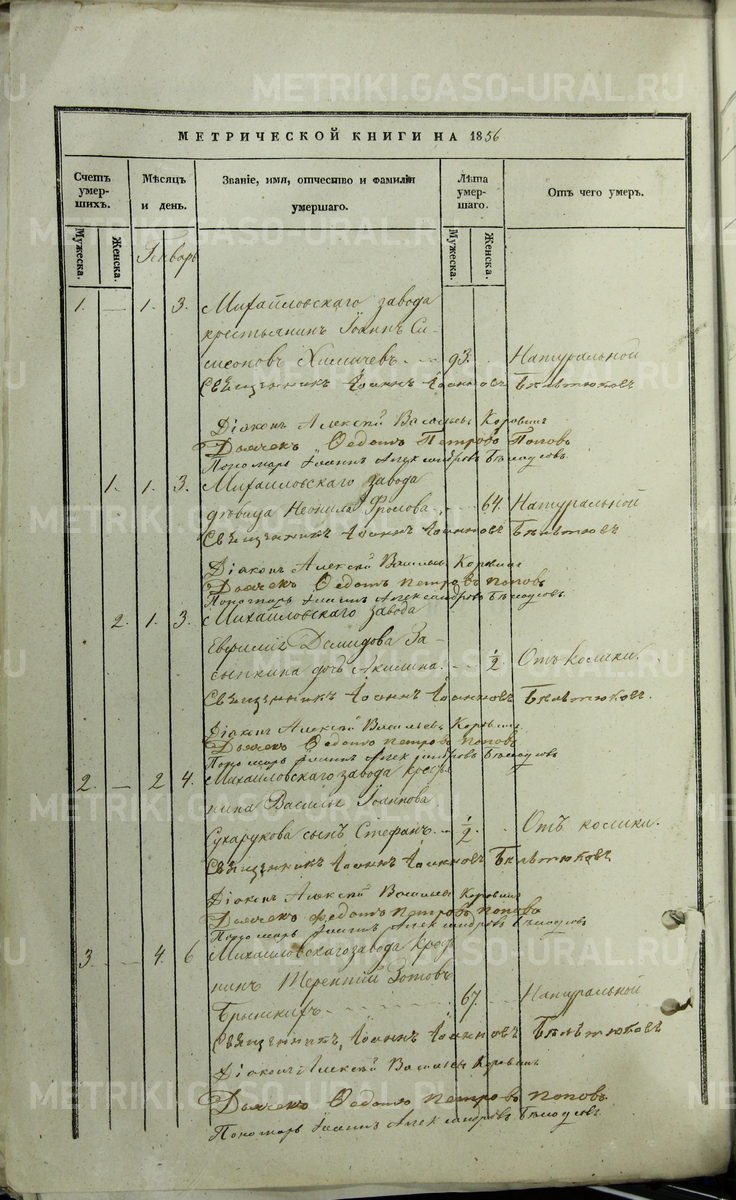 METRIKI.GASO-URAL.RU
МЕТРИЧЕСКОЙ КНИГИ НА 1856
Счетъ умер-шихъ. Мѣсяцъ и день. Званіе, имя, отчество и фамилія умершаго. Лѣта умер-шаго. Отъ чего умеръ.
Мужеска. Женска. Мужеска. Женска.
Генварь
1. — 1. 3. Михайловскаго завода
крестьянинъ Іоаннъ Си-
меоновъ 93. Натуральной
Священникъ Іоаннъ Іоанновъ
Діаконъ Алексѣй Васильевъ Коровинъ
Дьячекъ Ѳедотъ Петровъ Поповъ
Пономарь Іоаннъ Александровъ
1. 1. 3. Михайловскаго завода
дѣвица Неонила Фролова 64. Натуральной
Священникъ Іоаннъ Іоанновъ
Діаконъ Алексѣй Васильевъ Коровинъ
Дьячекъ Ѳедотъ Петровъ Поповъ
Пономарь Іоаннъ Александровъ
2. 1. 3. Михайловскаго завода
Евфимія Демидова За-
сыпкина дочь Акилина. 1/2 Отъ колики.
Священникъ Іоаннъ Іоанновъ
Діаконъ Алексѣй Васильевъ Коровинъ
Дьячекъ Ѳедотъ Петровъ Поповъ
Пономарь Іоаннъ Александровъ
2. — 2 4. Михайловскаго завода
Василія Іоаннова
Сухарукова сынъ Стефанъ 1/2. Отъ колики.
Священникъ Іоаннъ Іоанновъ
Діаконъ Алексѣй Васильевъ Коровинъ
Дьячекъ Ѳедотъ Петровъ Поповъ
Пономарь Іоаннъ Александровъ
3. — 4. 6 Михайловскаго завода
Терентій Зотовъ
67 Натуральной
Священникъ Іоаннъ Іоанновъ
Діаконъ Алексѣй Васильевъ Коровинъ
Дьячекъ Ѳедотъ Петровъ Поповъ
Пономарь Іоаннъ Александровъ